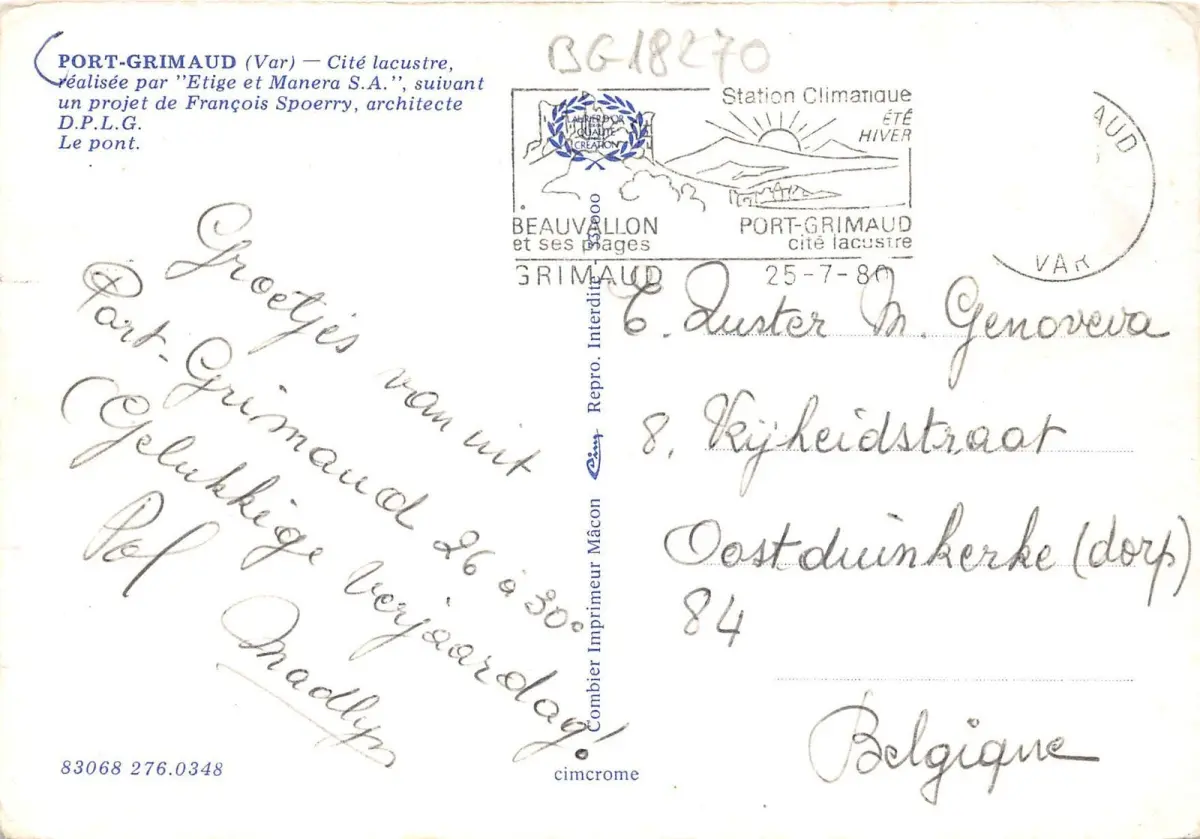 BG18270
PORT-GRIMAUD (Var) — Cité lacustre,
réalisée par "Etige et Manera S.A.", suivant
un projet de François Spoerry, architecte
D.P.L.G.
Le pont.
Station Climatique
ÉTÉ
HIVER
LAURIER D'OR
QUALITÉ
CRÉATION
BEAUVALLON
et ses plages
PORT-GRIMAUD
cité lacustre
GRIMAUD 25-7-80
AUD
VAR
Groetjes van uit
Port-Grimaud 26 à 30°
(Gelukkige Verjaardag!
Pol
Madlyn
E. Zuster M. Genoveva
8, Vrijheidstraat
Oostduinkerke (dorp)
84
Belgique
Combier Imprimeur Mâcon Cim Repro. Interdite - 35.000
83068 276.0348
cimcrome